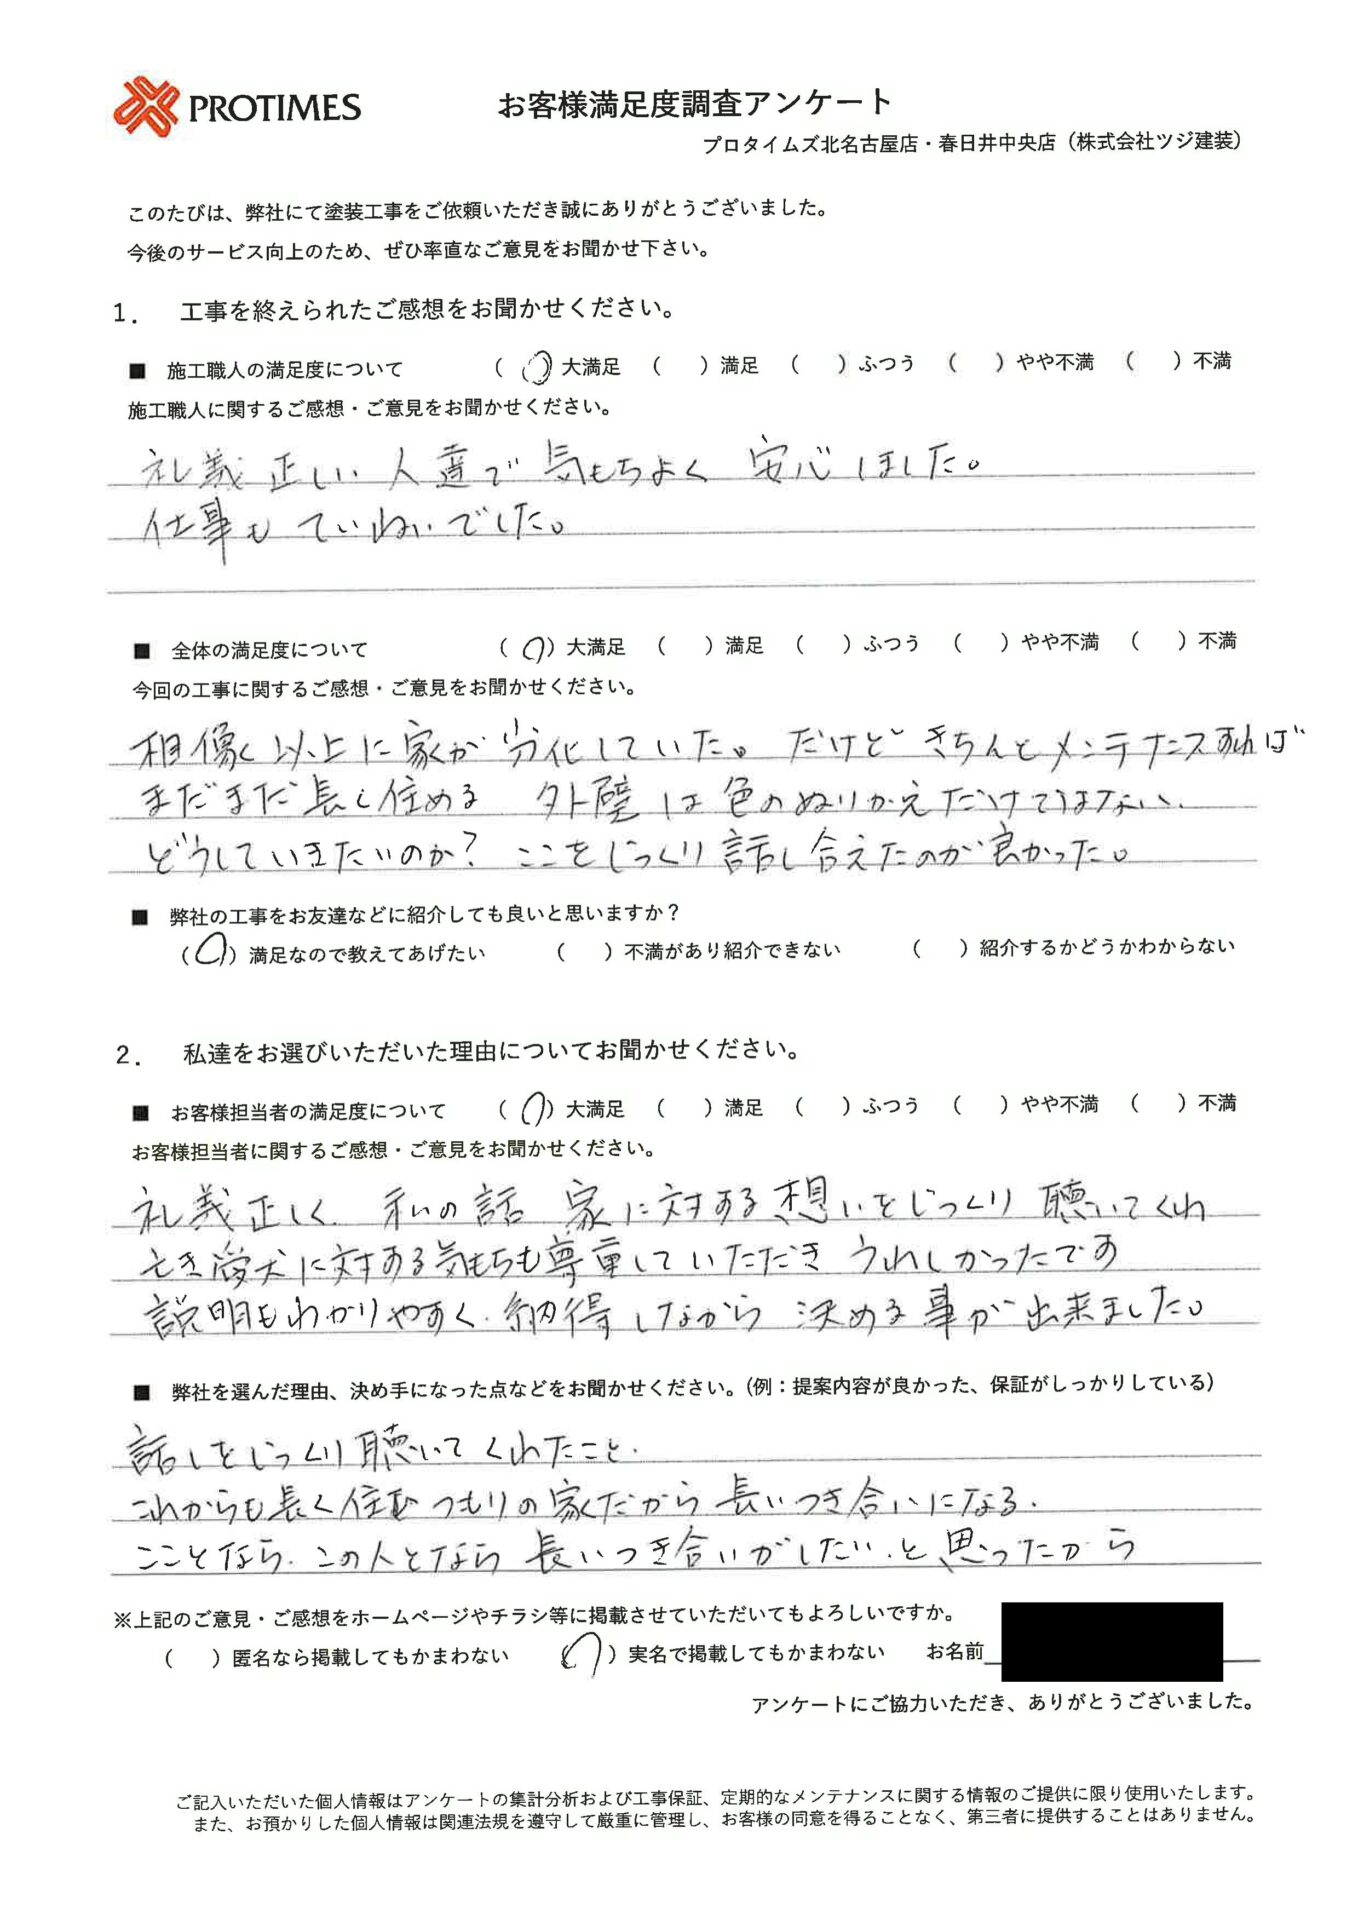 PROTIMES
お客様満足度調査アンケート
プロタイムズ北名古屋店・春日井中央店（株式会社ツジ建装）
このたびは、弊社にて塗装工事をご依頼いただき誠にありがとうございました。
今後のサービス向上のため、ぜひ率直なご意見をお聞かせ下さい。
1． 工事を終えられたご感想をお聞かせください。
■ 施工職人の満足度について （○）大満足 （ ）満足 （ ）ふつう （ ）やや不満 （ ）不満
施工職人に関するご感想・ご意見をお聞かせください。
礼義正しい人達で気もちよく 安心しました。
仕事もていねいでした。
■ 全体の満足度について （○）大満足 （ ）満足 （ ）ふつう （ ）やや不満 （ ）不満
今回の工事に関するご感想・ご意見をお聞かせください。
相像以上に家が劣化していた。だけどきちんとメンテナンスすれば
まだまだ長く住める 外壁は色のぬりかえだけではない、
どうしていきたいのか？ ここをじっくり話し合えたのが良かった。
■ 弊社の工事をお友達などに紹介しても良いと思いますか？
（○）満足なので教えてあげたい （ ）不満があり紹介できない （ ）紹介するかどうかわからない
2． 私達をお選びいただいた理由についてお聞かせください。
■ お客様担当者の満足度について （○）大満足 （ ）満足 （ ）ふつう （ ）やや不満 （ ）不満
お客様担当者に関するご感想・ご意見をお聞かせください。
礼義正しく、私の話 家に対する想いをじっくり聴いてくれ
亡き愛犬に対する気もちも尊重していただき うれしかったです
説明もわかりやすく、納得しながら 決める事が出来ました。
■ 弊社を選んだ理由、決め手になった点などをお聞かせください。（例：提案内容が良かった、保証がしっかりしている）
話しをじっくり聴いてくれたこと、
これからも長く住むつもりの家だから長いつき合いになる、
こことなら、この人となら 長いつき合いがしたい、と思ったから
※上記のご意見・ご感想をホームページやチラシ等に掲載させていただいてもよろしいですか。
（ ）匿名なら掲載してもかまわない （○）実名で掲載してもかまわない お名前
アンケートにご協力いただき、ありがとうございました。
ご記入いただいた個人情報はアンケートの集計分析および工事保証、定期的なメンテナンスに関する情報のご提供に限り使用いたします。
また、お預かりした個人情報は関連法規を遵守して厳重に管理し、お客様の同意を得ることなく、第三者に提供することはありません。